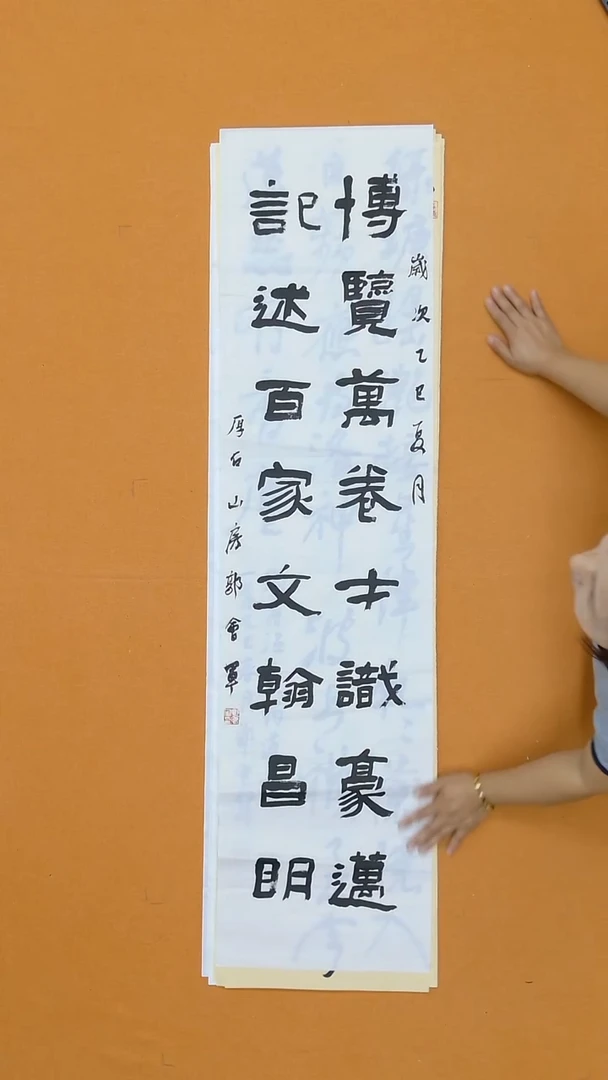 歲次乙巳夏月
博覽萬卷才識豪邁
記述百家文翰昌明
厚石山房郭會軍